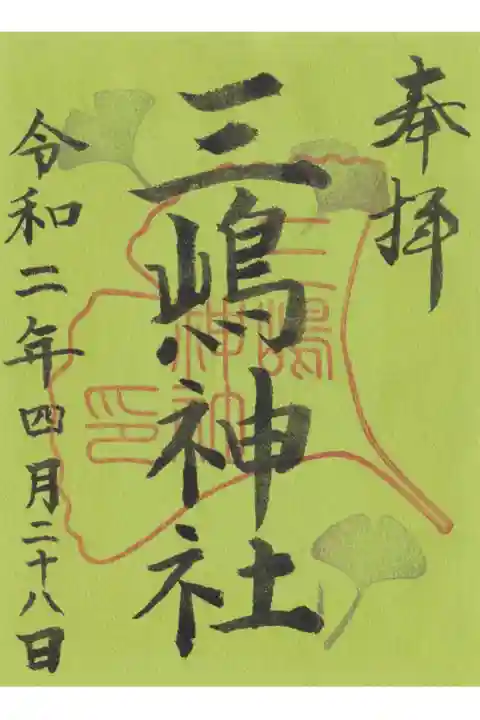 奉拝
三嶋神社
三嶋神社印
令和二年四月二十八日